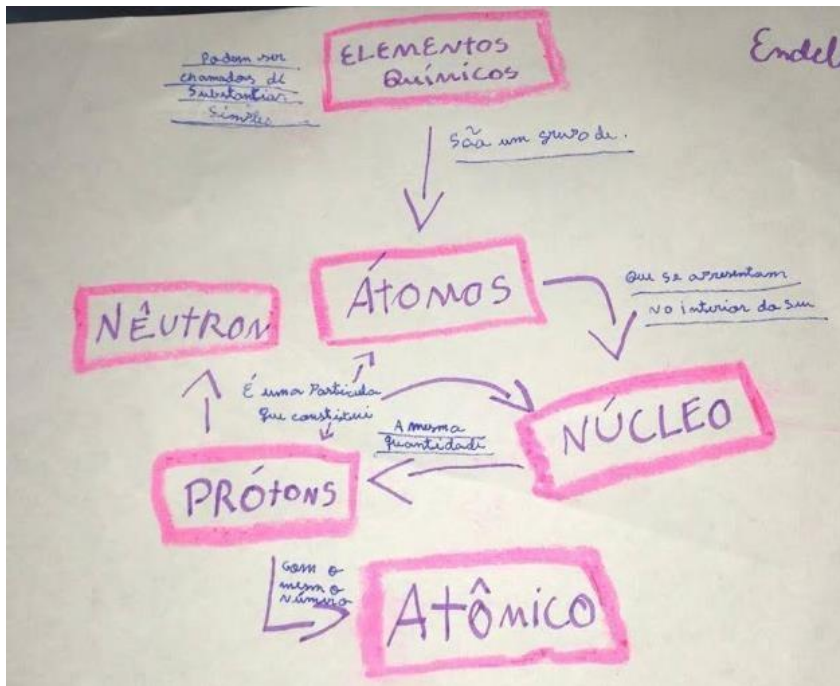 Podem ser
chamados de
Substantias
Simples
ELEMENTOS
QUÍMICOS
Endel
São um grupo de.
NÊUTRON
ÁTOMOS
Que se apresentam
no interior do seu
É uma Particula
que constitui
A mesma
quantidade
NÚCLEO
PRÓTONS
Com o
mesmo
número
ATÔMICO